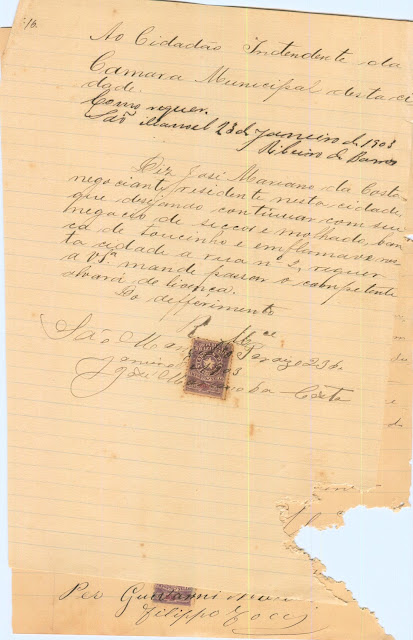 16.
Ao Cidadão Intendente da
Camara Municipal desta ci
dade.
Como requer.
São Manuel 23 de Janeiro de 1903
Ribeiro de Barros
Diz José Mariano da Costa
negociante, residente nesta cidade,
que desejando continuar com seu
negocio de seccos e molhado, ban
ca de toucinho e emflamave nes
ta cidade a rua nº 2, requer
a Vª Sª mande passar o competente
alvará de licença.
Do differimento
E. R. Mce
São Manuel do Paraizo 23 de
Janeiro 1903
José Mariano da Costa
Per Giovanni
Filippo